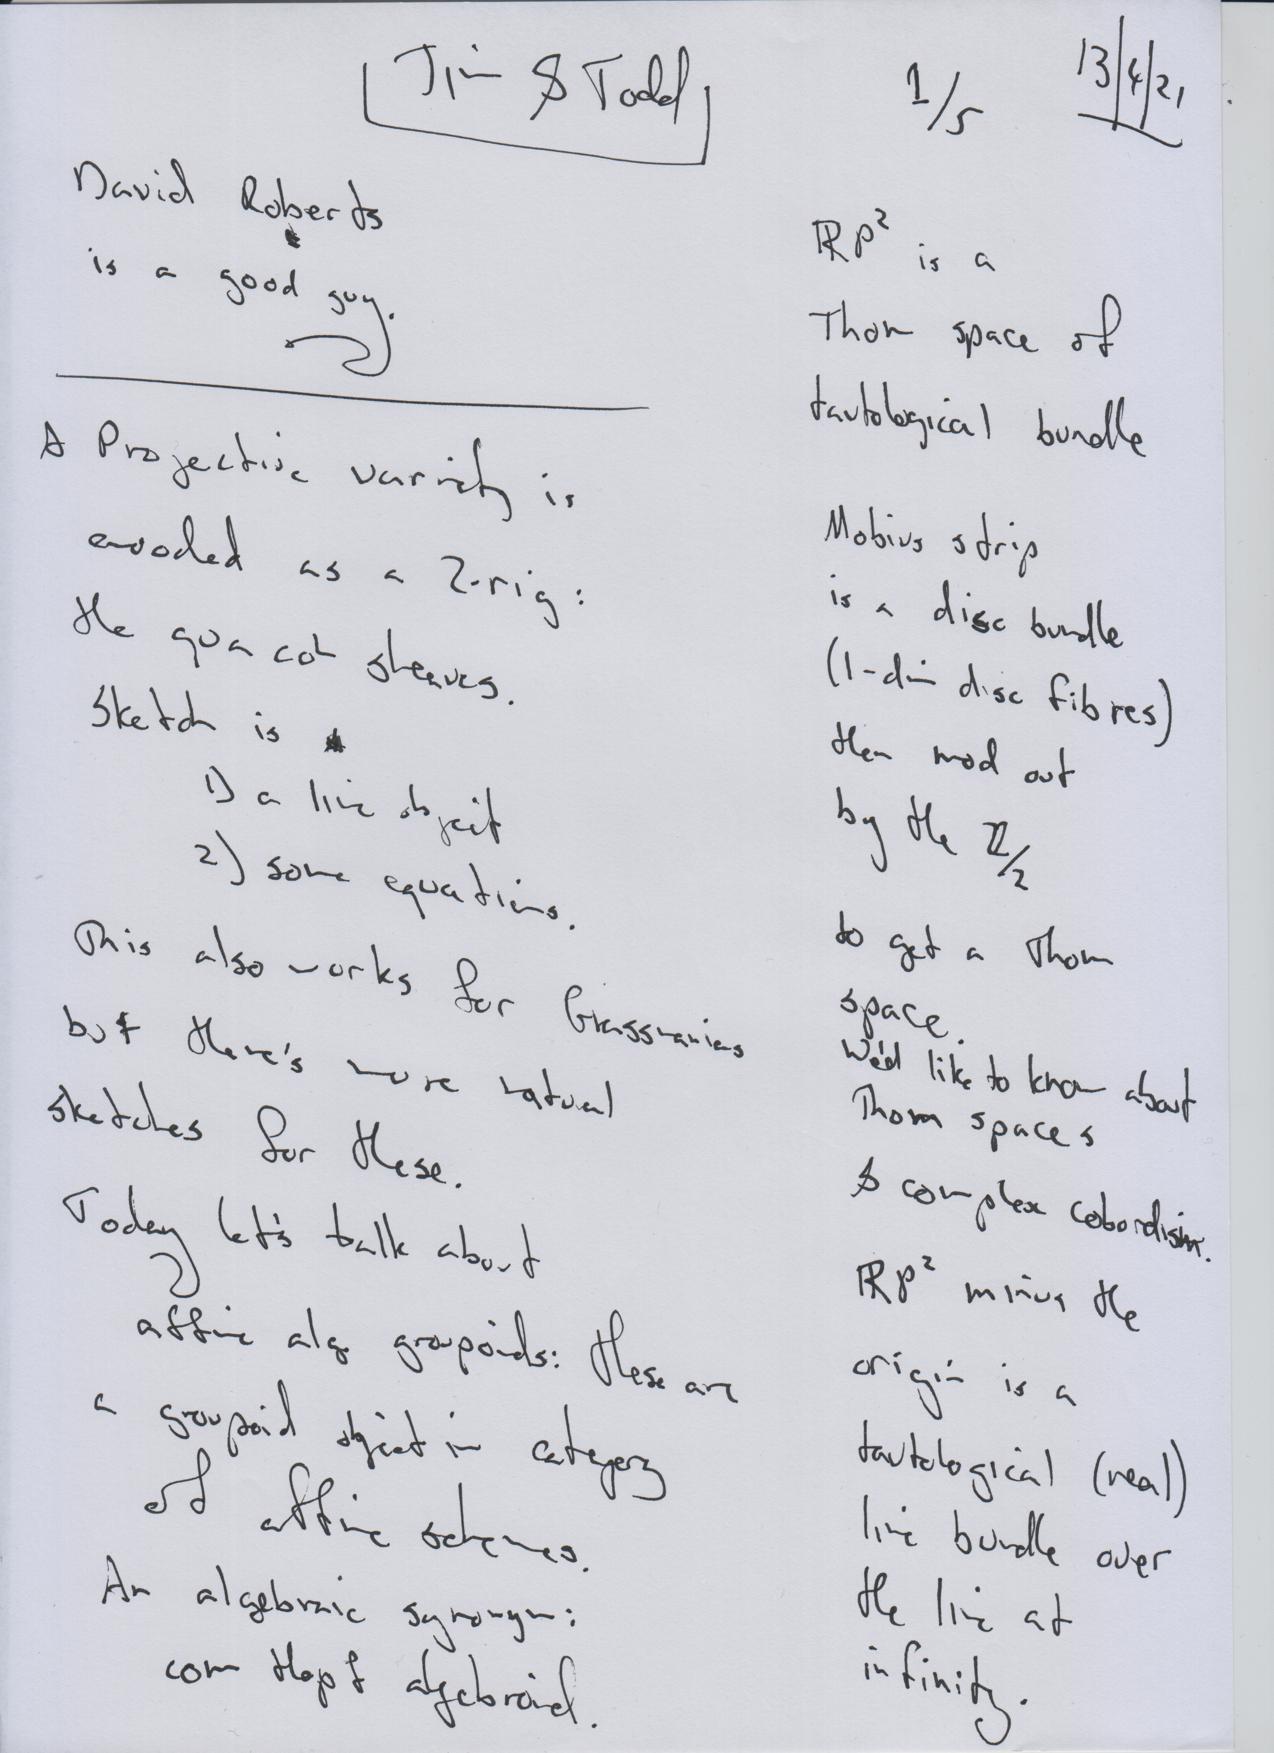 Jim & Todd
1/5
13/4/21
David Roberts
is a good guy.
A Projective variety is
encoded as a 2-rig:
the qua coh sheaves.
Sketch is
1) a line object
2) some equations.
This also works for Grassmanians
but there's more natural
sketches for these.
Today let's talk about
affine alg groupoids: these are
a groupoid object in category
of affine schemes.
An algebraic synonym:
com Hopf algebroid.
ℝP² is a
Thom space of
tautological bundle
Mobius strip
is a disc bundle
(1-dim disc fibres)
then mod out
by the ℤ/2
to get a Thom
space.
We'd like to know about
Thom spaces
& complex cobordism.
ℝP² minus the
origin is a
tautological (real)
line bundle over
the line at
infinity.